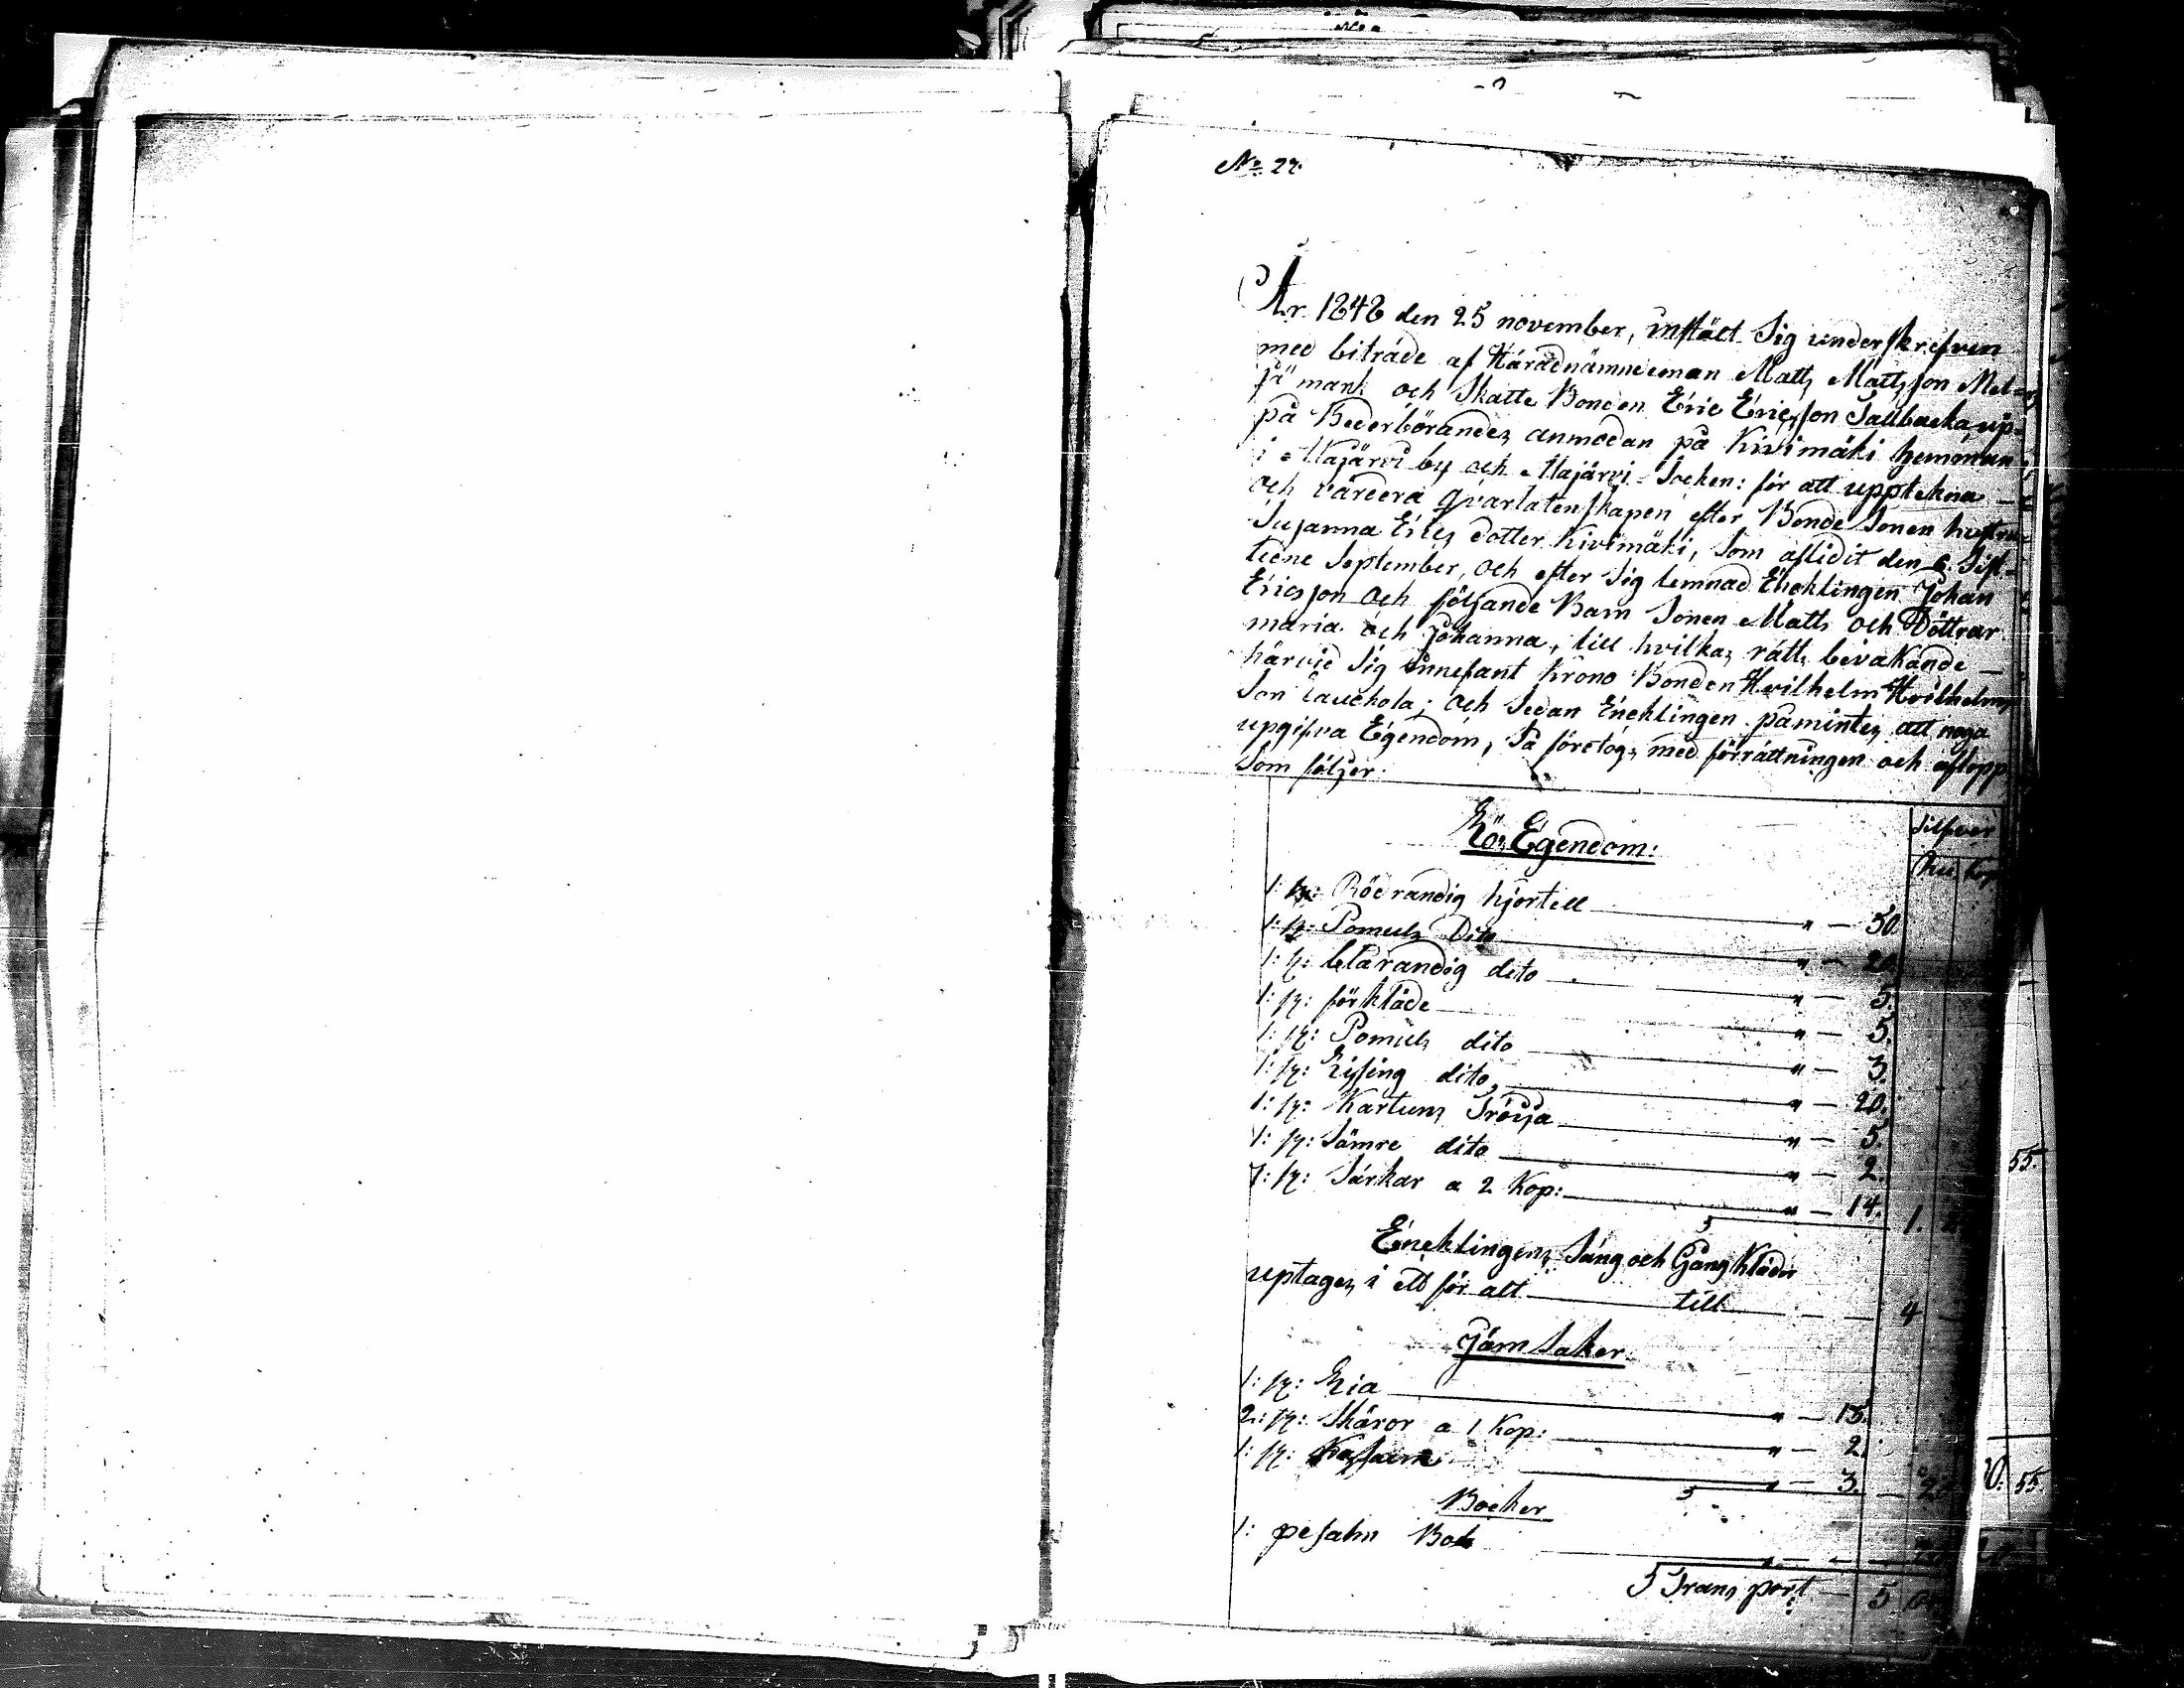 No 22.
År 1848 den 25 november, instält Sig underskrefven
med biträde af Häradnämndeman Matts Mattsson Met-
sämank och Skatte Bonden Eric Ericsson Sallbacka, up-
på Vederbörandes anmodan på Kivimäki hemman
i Alajärvi by och Alajärvi Socken: för att upptekna
och värdera qvarlatenskapen efter Bonde Sonen hustru
Susanna Erics dotter Kivimäki, Som aflidit den 6. Sist-
ledne September, och efter Sig lemnad Enchlingen Johan
Ericsson och följande Barn Sonen Matts och Döttrar
maria och Johanna, till hvilkas rätts bevakande
härvid Sig innefant Krono Bonden Hvilhelm Hvilhelms
Son Lauchola; och Sedan Enchlingen påmintes att noga
upgifva Egendom, Så företogs med förrättningen och aflopp
Som följer.
Silfver
Lös Egendom:
Ru Kop
1: st: Rödrandig kjortell " — 50.
1: st: Pomuls Dito " — 20.
1: st: blårandig dito " — 5.
1: st: förkläde " — 5.
1: st: Pomuls dito " — 3.
1: st: Lissing dito, " — 20.
1: st: Kartuns Tröija " — 5.
1: st: Sämre dito " — 2.
7: st: Särkar a 2 Kop: " — 14. 1.
Enchlingens Säng och Gång Kläder
uptages i ett för alt till 4
Järn Saker
1: st: Lia " — 15.
2: st: Skäror a 1 Kop: " — 2.
1: st: " — 3.
Böcker
1: psalm Bok
Transport 5
55.
0. 55.